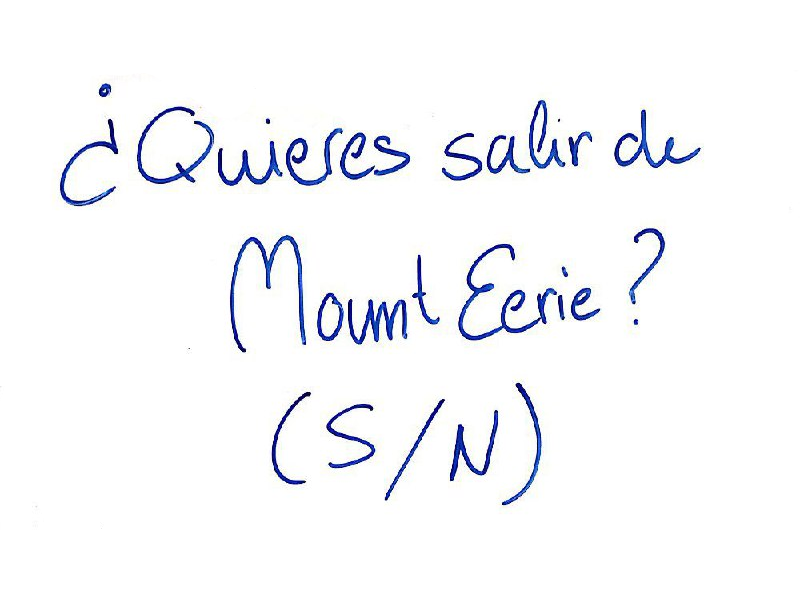 ¿Quieres salir de
Mount Eerie?
(S/N)